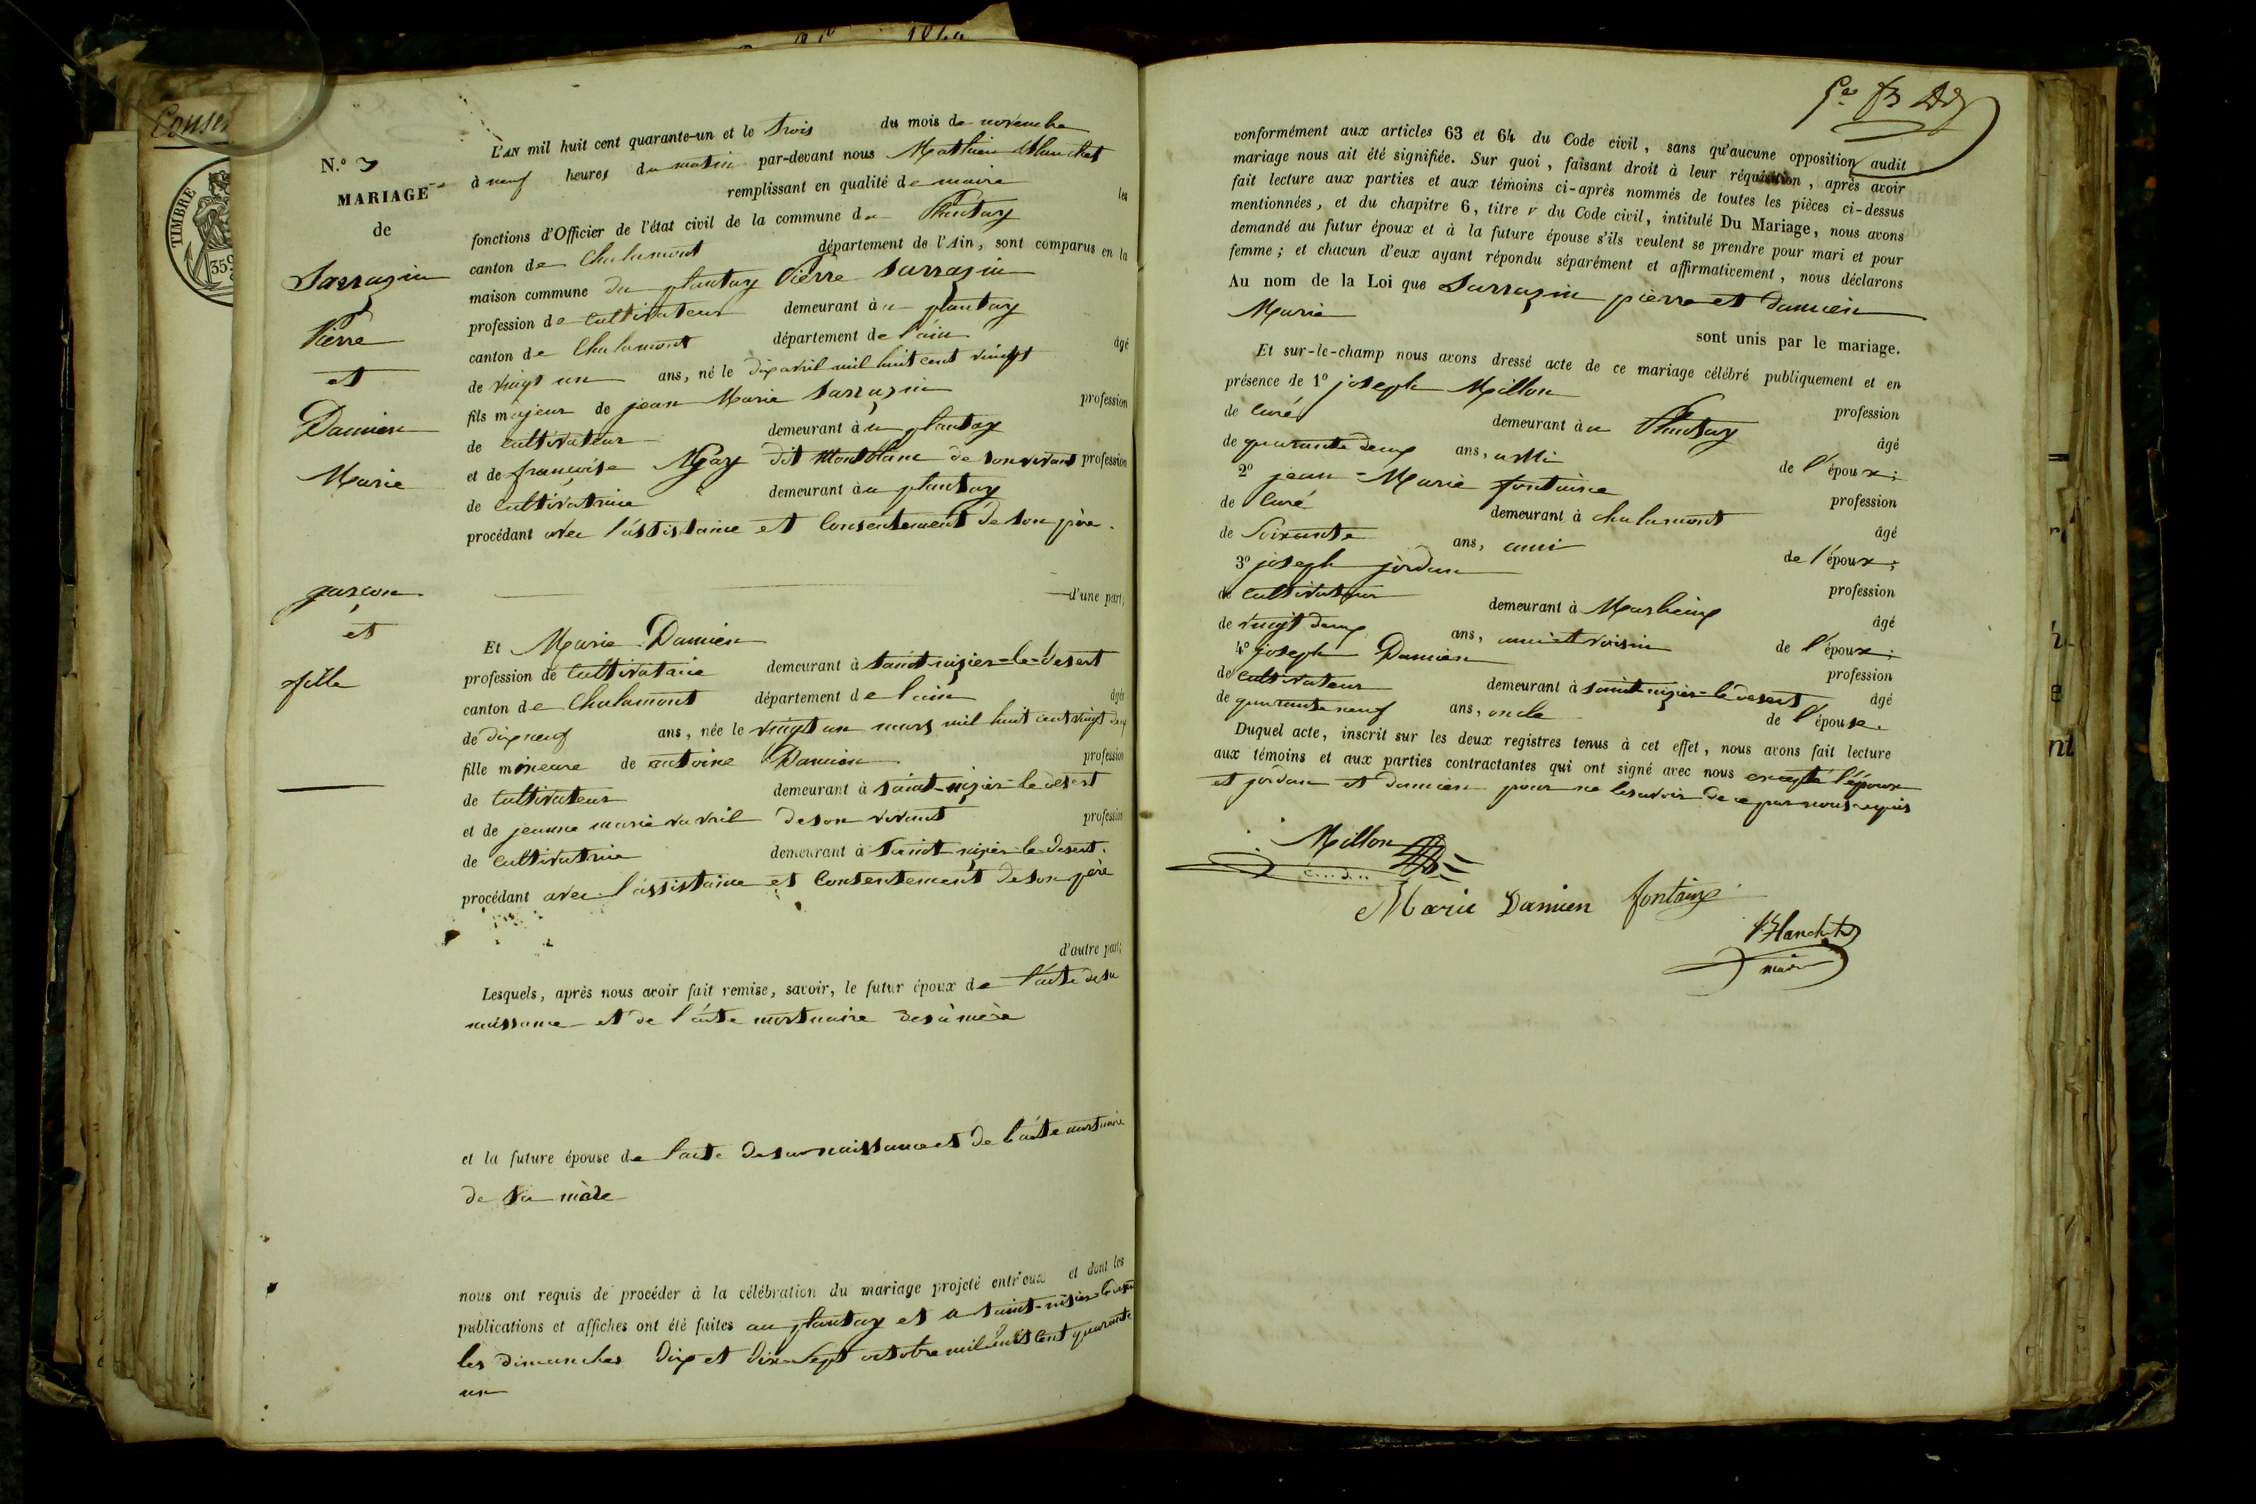 1840
Conse
TIMBRE
359
N.º 3
MARIAGE
de
Sarrazin
Pierre
et
Damien
Marie
garcon
et
fille
L'AN mil huit cent quarante-un et le trois du mois de novembre
à neuf heures du matin par-devant nous Mathieu Blanchet
remplissant en qualité de maire les
fonctions d'Officier de l'état civil de la commune du Plantay
canton de Chalamont département de l'Ain, sont comparus en la
maison commune du plantay Pierre Sarrazin
profession de cultivateur demeurant au plantay
canton de Chalamont département de l'ain âgé
de vingt un ans, né le dix avril mil huit cent vingt
fils majeur de jean Marie Sarrazin profession
de cultivateur demeurant à u plantay
et de françoise dit Montblanc de son vivant profession
de cultivatrice demeurant à u plantay
procédant avec l'assistance et Consentement de son père.
d'une part;
Et Marie Damien
profession de cultivatrice demeurant à saint-nizier-le-desert
canton de Chalamont département de l'ain âgée
de dix neuf ans, née le vingt un mars mil huit cent vingt deux
fille mineure de antoine Damien profession
de Cultivateur demeurant à saint-nizier-le desert
et de jeanne marie de son vivant profession
de cultivatrice demeurant à saint nizier-le-desert.
procédant avec l'assistance et Consentement de son père
d'autre part;
Lesquels, après nous avoir fait remise, savoir, le futur époux de l'acte de sa
naissance et de l'acte mortuaire de sa mère
et la future épouse de l'acte de sa naissance et de l'acte mortuaire
de sa mère
nous ont requis de procéder à la célébration du mariage projeté entr'eux et dont les
publications et affiches ont été faites au plantay et a saint-nisier-le desert
les dimanches dix et dix-sept octobre mil huit cent quarante
un
conformément aux articles 63 et 64 du Code civil, sans qu'aucune opposition audit
mariage nous ait été signifiée. Sur quoi, faisant droit à leur réquisition, après avoir
fait lecture aux parties et aux témoins ci-après nommés de toutes les pièces ci-dessus
mentionnées, et du chapitre 6, titre v du Code civil, intitulé Du Mariage, nous avons
demandé au futur époux et à la future épouse s'ils veulent se prendre pour mari et pour
femme; et chacun d'eux ayant répondu séparément et affirmativement, nous déclarons
Au nom de la Loi que Sarrazin pierre et damien
Marie
sont unis par le mariage.
Et sur-le-champ nous avons dressé acte de ce mariage célébré publiquement et en
présence de 1º joseph Millon profession
de curé demeurant à u Plantay âgé
de quarante deux ans, ami de l'époux;
2º jean-Marie fontaine profession
de Curé demeurant à chalamont âgé
de Soixante ans, ami de l'époux;
3º joseph jordan profession
de cultivateur demeurant à Marlieux âgé
de vingt deux ans, ami et voisin de l'époux;
4º joseph Damien profession
de cultivateur demeurant à saint-nizier-le desert âgé
de quarante neuf ans, oncle de l'épouse.
Duquel acte, inscrit sur les deux registres tenus à cet effet, nous avons fait lecture
aux témoins et aux parties contractantes qui ont signé avec nous excepté l'époux
et jordan et damien pour ne le savoir de ce par nous requis
Millon
Marie Damien fontaine
Blanchet
maire